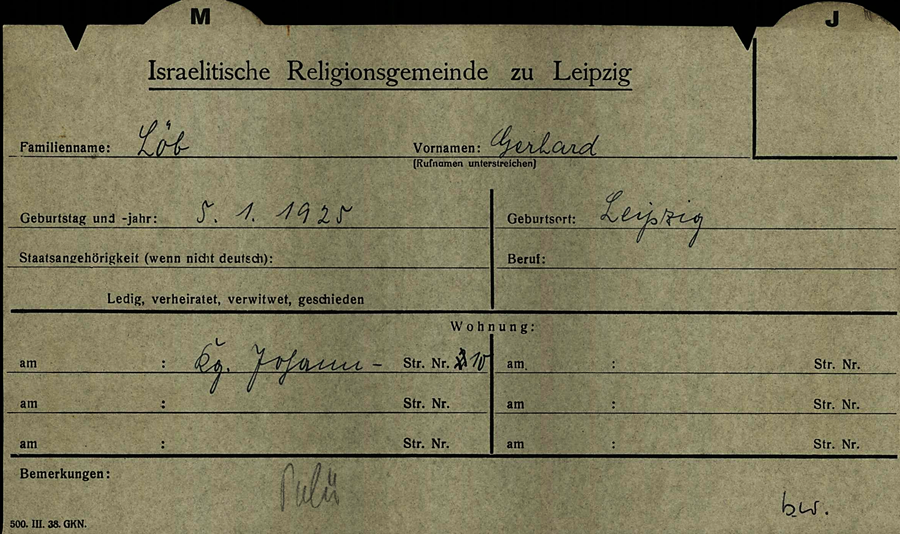 M J
Israelitische Religionsgemeinde zu Leipzig
Familienname: Löb Vornamen: Gerhard
(Rufnamen unterstreichen)
Geburtstag und -jahr: 5. 1. 1925 Geburtsort: Leipzig
Staatsangehörigkeit (wenn nicht deutsch): Beruf:
Ledig, verheiratet, verwitwet, geschieden
Wohnung:
am : Kg. Johann- Str. Nr. 10 am : Str. Nr.
am : Str. Nr. am : Str. Nr.
am : Str. Nr. am : Str. Nr.
Bemerkungen:
b.w.
500. III. 38. GKN.